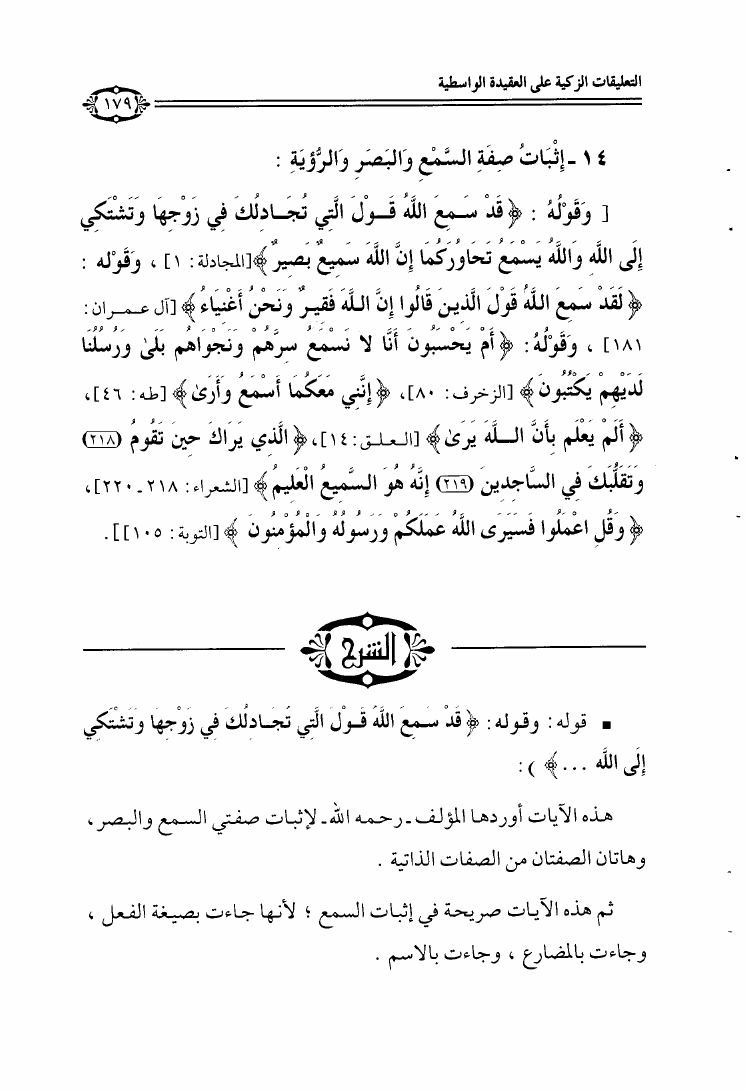 التعليقات الزكية على العقيدة الواسطية
١٧٩
١٤ - إِثْبَاتُ صِفَةِ السَّمْعِ وَالبَصَرِ وَالرُّؤْيَةِ :
[ وَقَوْلُهُ : ﴿ قَدْ سَمِعَ اللَّهُ قَوْلَ الَّتِي تُجَادِلُكَ فِي زَوْجِهَا وَتَشْتَكِي
إِلَى اللَّهِ وَاللَّهُ يَسْمَعُ تَحَاوُرَكُمَا إِنَّ اللَّهَ سَمِيعٌ بَصِيرٌ ﴾ [المجادلة: ١] ، وَقَوْلُه :
﴿ لَقَدْ سَمِعَ اللَّهُ قَوْلَ الَّذِينَ قَالُوا إِنَّ اللَّهَ فَقِيرٌ وَنَحْنُ أَغْنِيَاءُ ﴾ [آل عمران:
١٨١] ، وَقَوْلُهُ: ﴿ أَمْ يَحْسَبُونَ أَنَّا لا نَسْمَعُ سِرَّهُمْ وَنَجْوَاهُم بَلَىٰ وَرُسُلُنَا
لَدَيْهِمْ يَكْتُبُونَ ﴾ [الزخرف: ٨٠]، ﴿ إِنَّنِي مَعَكُمَا أَسْمَعُ وَأَرَىٰ ﴾ [طه: ٤٦]،
﴿ أَلَمْ يَعْلَم بِأَنَّ اللَّهَ يَرَىٰ ﴾ [العلق: ١٤]، ﴿ الَّذِي يَرَاكَ حِينَ تَقُومُ (٢١٨)
وَتَقَلُّبَكَ فِي السَّاجِدِينَ (٢١٩) إِنَّهُ هُوَ السَّمِيعُ الْعَلِيمُ ﴾ [الشعراء: ٢١٨ - ٢٢٠]،
﴿ وَقُلِ اعْمَلُوا فَسَيَرَى اللَّهُ عَمَلَكُمْ وَرَسُولُهُ وَالْمُؤْمِنُونَ ﴾ [التوبة: ١٠٥]].
الشرح
▪ قوله: وقوله: ﴿ قَدْ سَمِعَ اللَّهُ قَوْلَ الَّتِي تُجَادِلُكَ فِي زَوْجِهَا وَتَشْتَكِي
إِلَى اللَّهِ ... ﴾ ) :
هذه الآيات أوردها المؤلف - رحمه الله - لإثبات صفتي السمع والبصر ،
وهاتان الصفتان من الصفات الذاتية .
ثم هذه الآيات صريحة في إثبات السمع ؛ لأنها جاءت بصيغة الفعل ،
وجاءت بالمضارع ، وجاءت بالاسم .